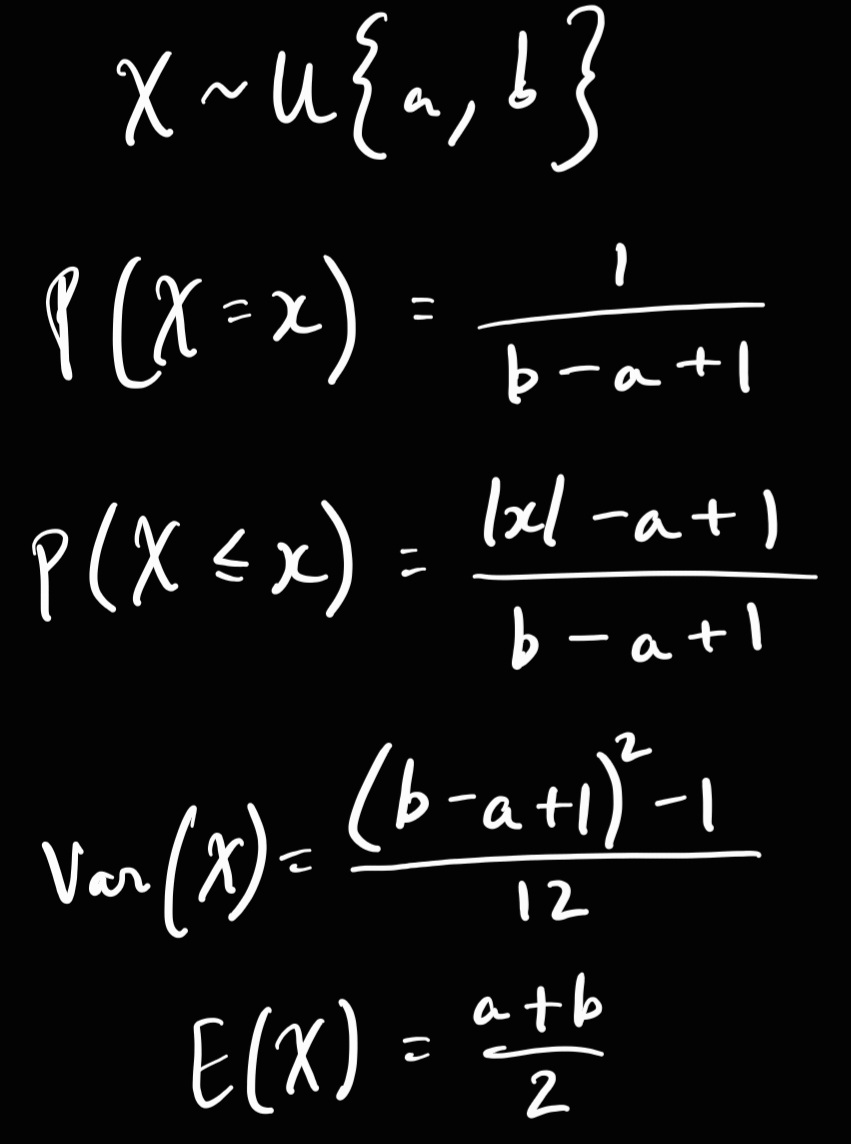 X ~ U{a, b}
P(X = x) = 1 / (b - a + 1)
P(X ≤ x) = (|x| - a + 1) / (b - a + 1)
Var(X) = ((b - a + 1)² - 1) / 12
E(X) = (a + b) / 2